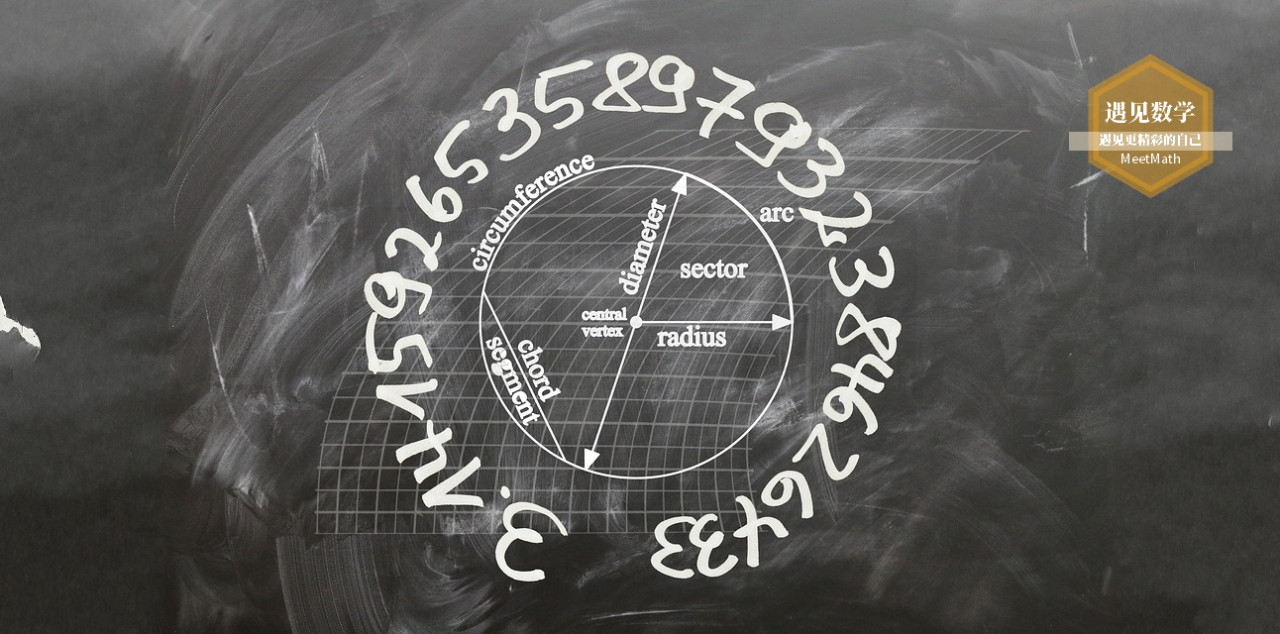 3.1415926535897932384626433
circumference
diameter
arc
sector
central
vertex
radius
chord
segment
遇见数学
遇见更精彩的自己
MeetMath